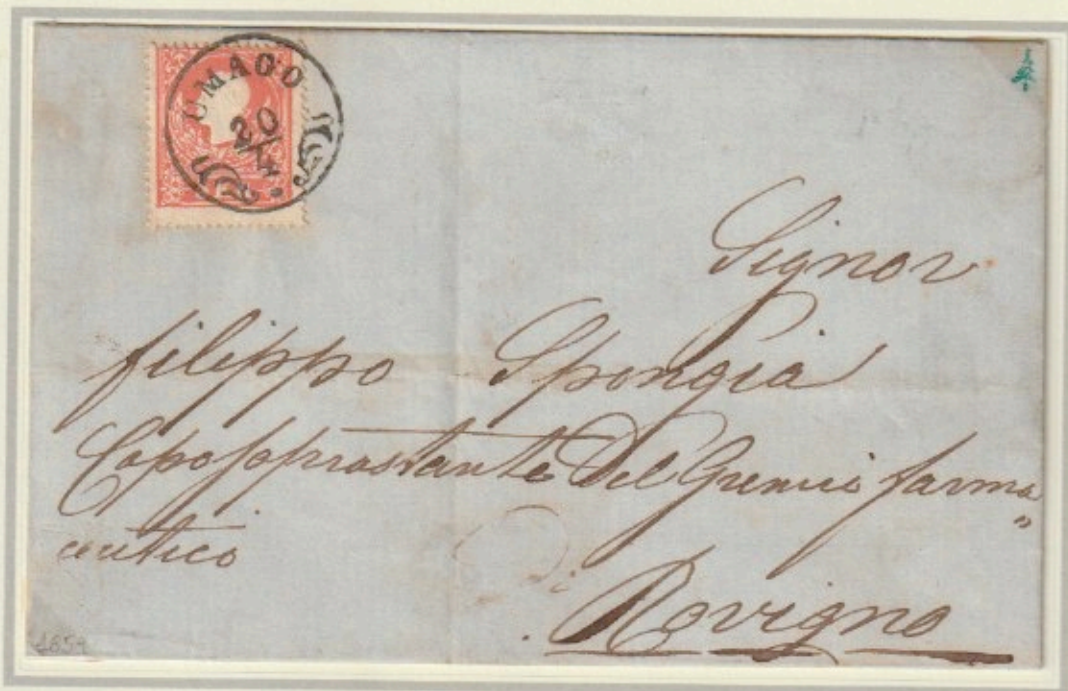 UMAGO
20/4
Signor
filippo Spongia
Caposoprastante Del Gremio farma
ceutico
di
Rovigno